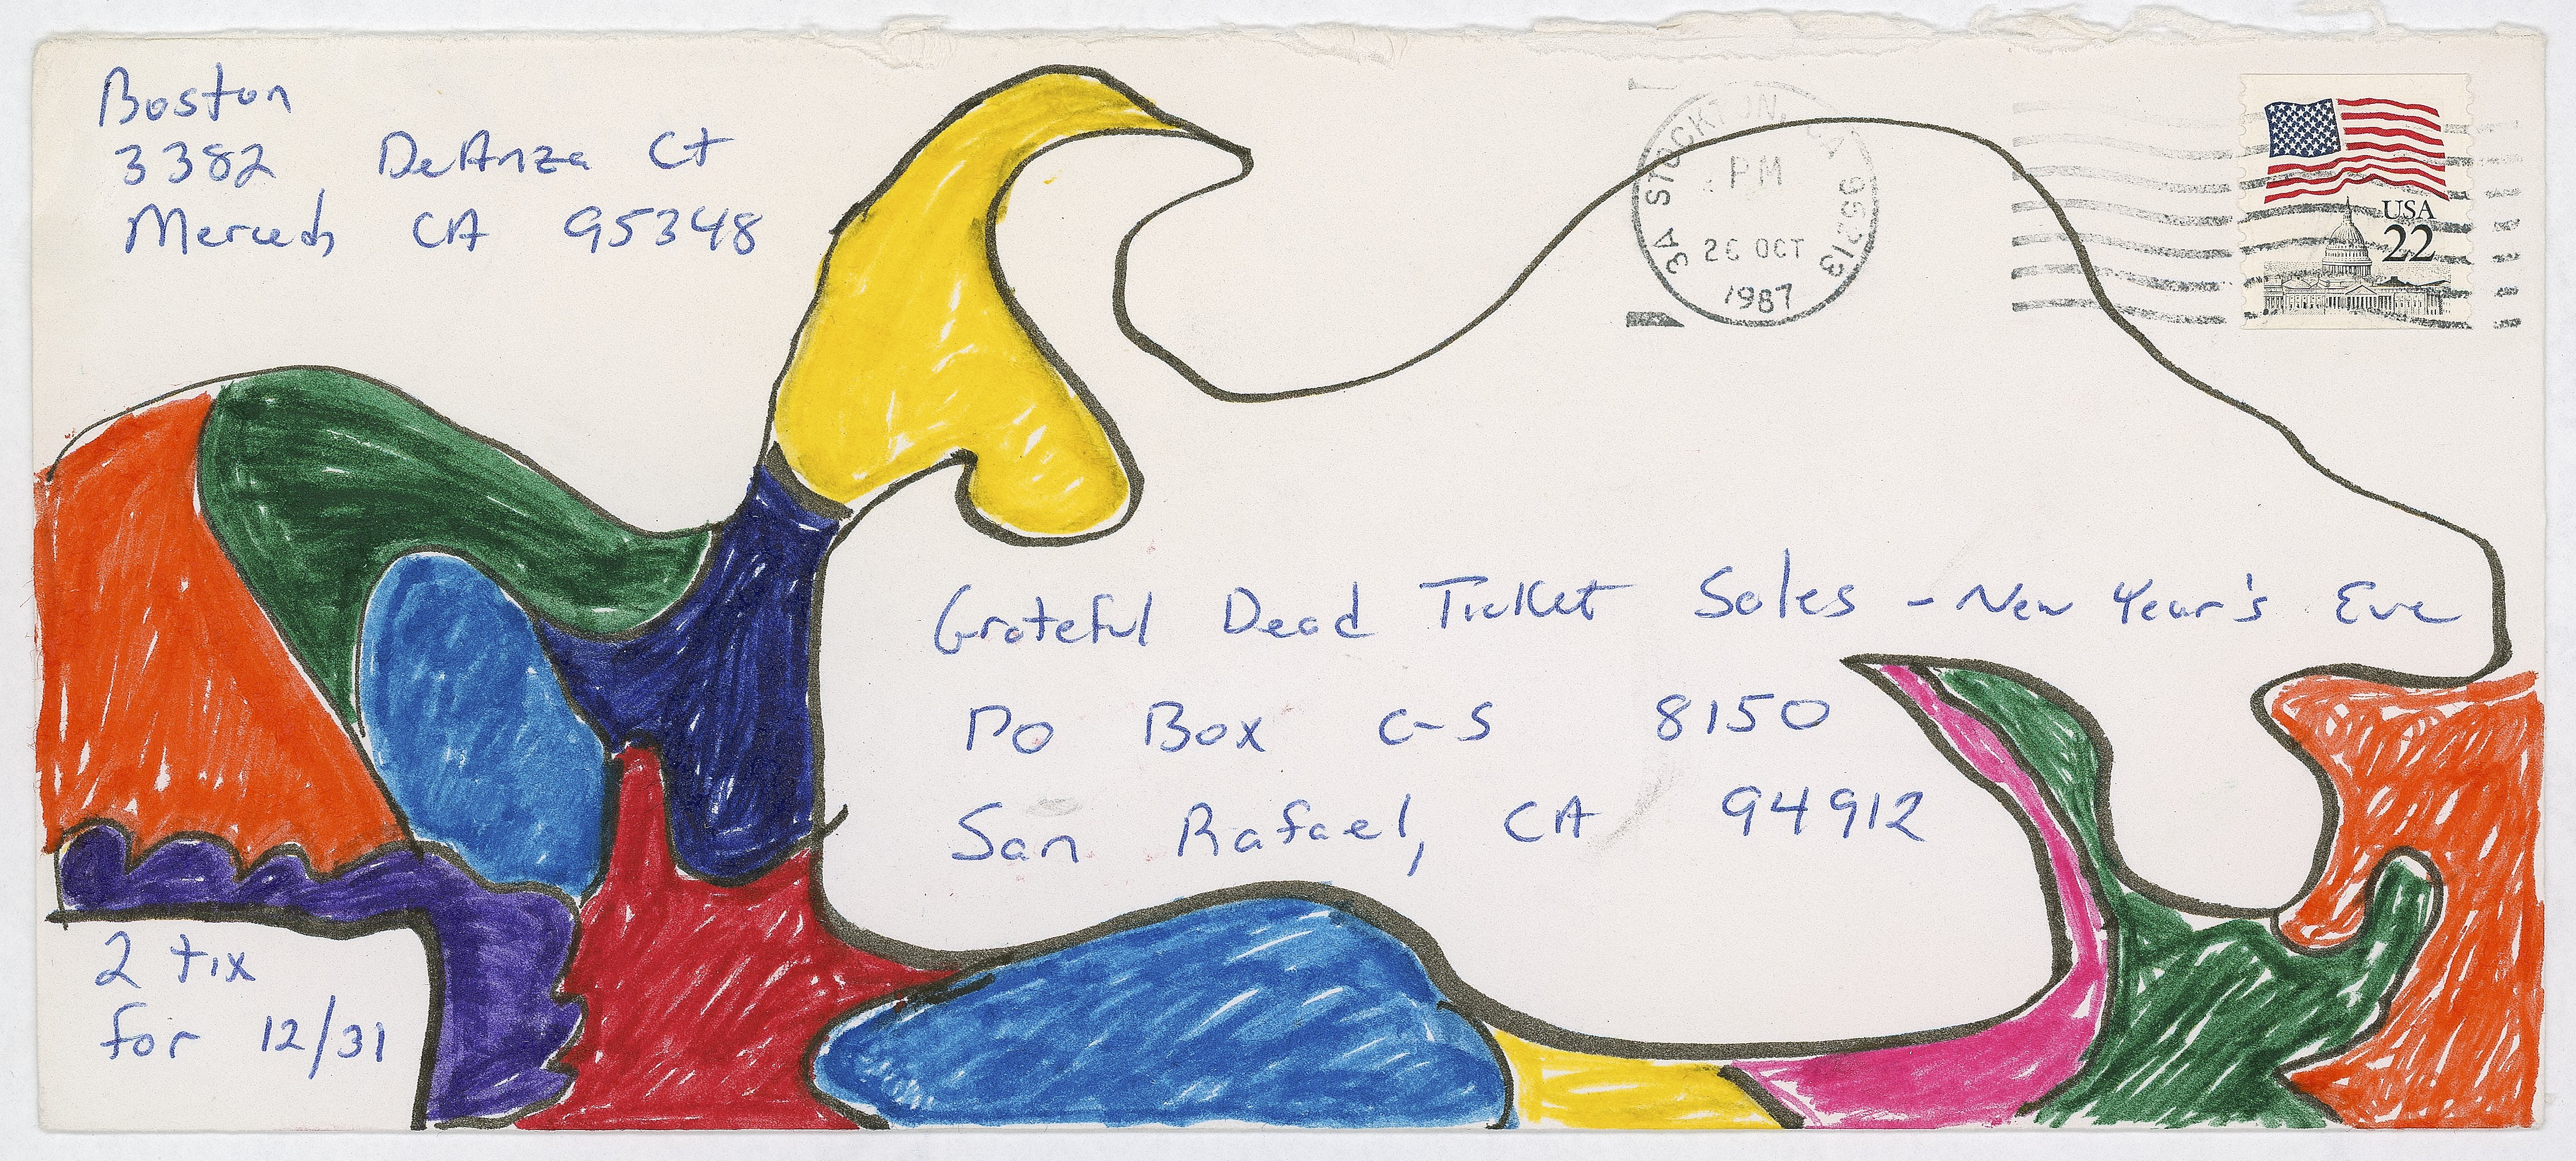 Boston
3382 DeAnza Ct
Merced, CA 95348
STOCKTON, CA
PM
26 OCT
1987
USA
22
Grateful Dead Ticket Sales - New Year's Eve
PO Box C-S 8150
San Rafael, CA 94912
2 tix
for 12/31